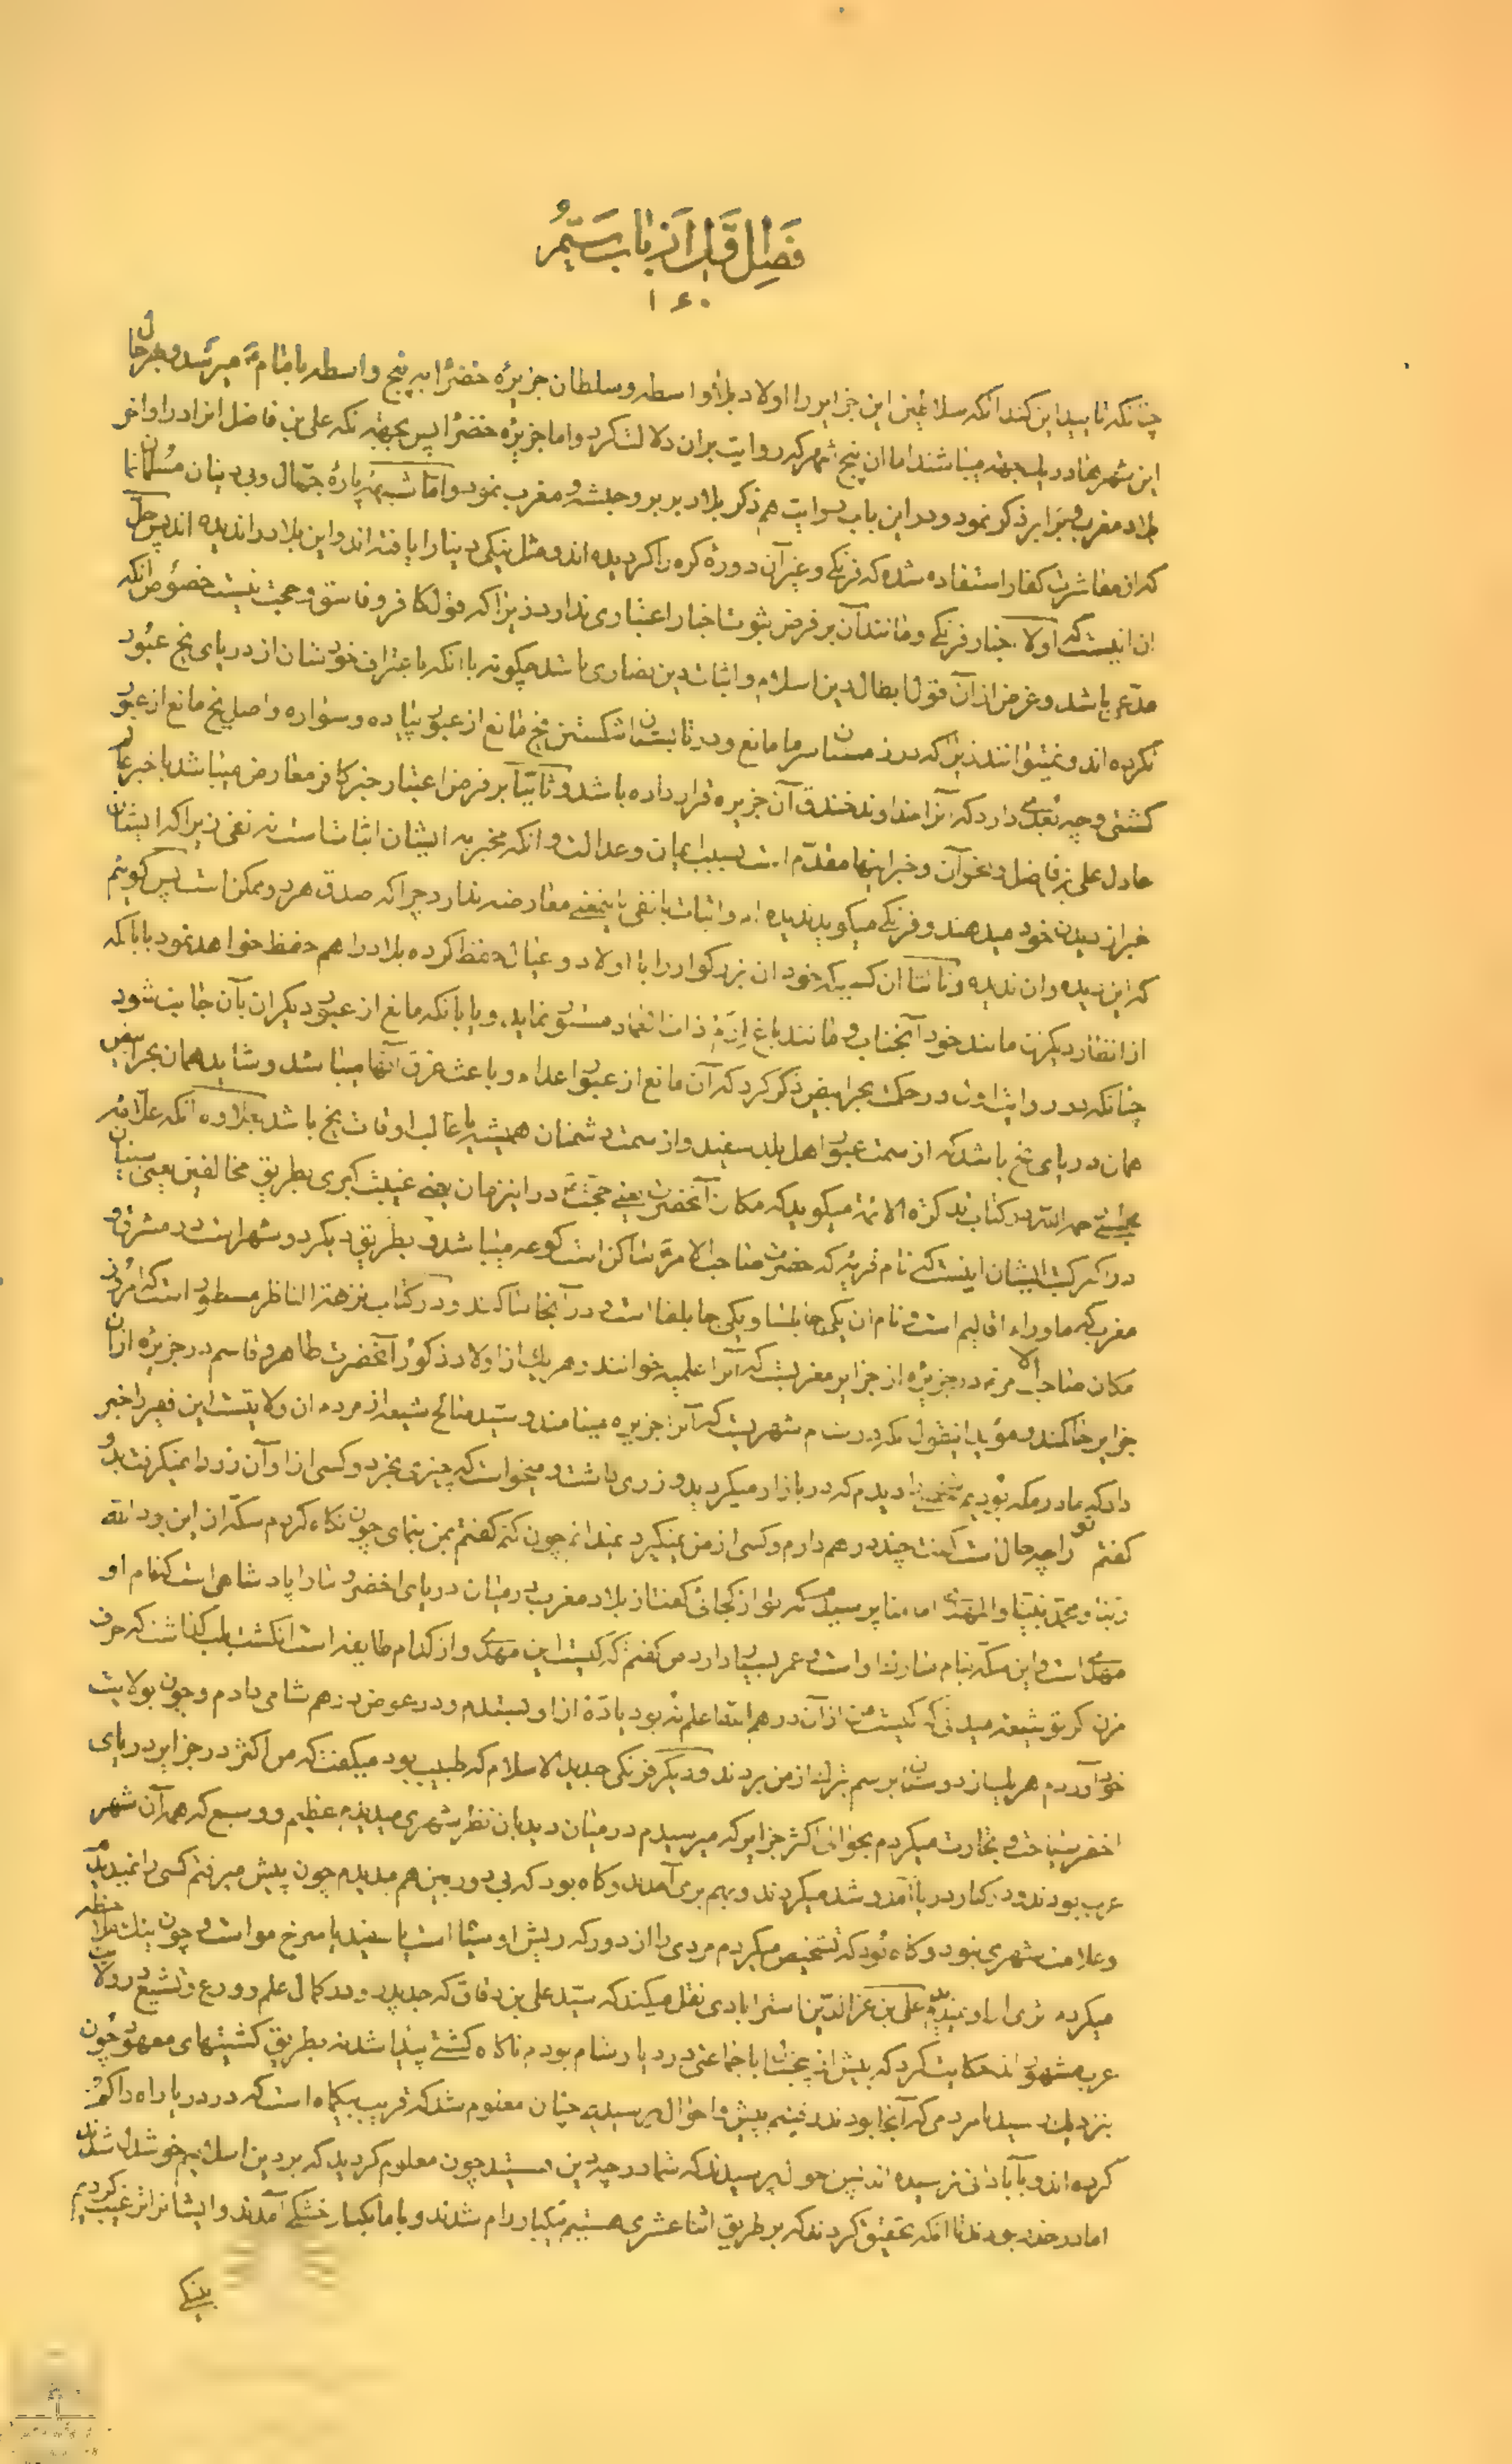 فصل اول از باب ستم
۱۶۰
چنانکه تایید این کند آنکه سلاطین این جزایر را اولاد بلاواسطه و سلطان جزیرهٔ خضرا به پنج واسطه بامام میرسد و بهر حال
این شهرها در یک جهة میباشند اما آن پنج شهر که روایت بران دلالت کرد و اما جزیرهٔ خضرا پس بجهة آنکه علی بن فاضل انرا در اواخر
بلاد مغرب و برابر ذکر نمود و در این باب روایت هم ذکر بلاد بربر و حبشه و مغرب نمود و اما شبههٔ پارهٔ جهال و بی دینان مسلمان نما
که از معاشرت کفار استفاده شده که فرنکی و غیر آن دورهٔ کره را کردیده اند و مثل ینکی دنیا را یافته اند و این بلاد را ندیده اند پس حل
ان اینست که اولا اخبار فرنکی و مانند آن بر فرض ثبوت اخبار اعتباری ندارد زیرا که قول کافر و فاسق حجت نیست خصوص آنکه
مدعی باشد و غرض از آن قول ابطال دین اسلام و اثبات دین نصاری باشد چکونه با آنکه باعتراف خودشان از دریای یخ عبور
نکرده اند و نمیتوانند زیرا که در زمستان سرما مانع و در تابستان شکستن یخ مانع از عبور پیاده و سواره و اصل یخ مانع از عبور
کشتی و چه بعدی دارد که آنرا خداوند خندق آن جزیره قرار داده باشد و ثانیا بر فرض اعتبار خبر کافر معارض میباشد با خبر عالم
عادل علی بن فاضل و نحو آن و خبر اینها مقدم است بسبب ایمان و عدالت و آنکه مخبر به ایشان اثباتست نه نفی زیرا که ایشان
خبر از دیدن خود میدهند و فرنکی میکوید ندیده ام و اثبات با نفی باینمعنی معارضه ندارد چرا که صدق هر دو ممکن است پس کوئیم
که این دیده و ان ندیده و ثالثا ان کسیکه خود ان بزرکوار را با اولاد و عیال حفظ کرده بلاد را هم حفظ خواهد نمود یا بآنکه
از انظار دیکران مانند خود آنجناب و مانند باغ ارم ذات العماد مستور نماید، و یا بآنکه مانع از عبور دیکران بآن جانب شود
چنانکه در روایت اول در حکایت بحر ابیض ذکر کرد که آن مانع از عبور اعداء و باعث غرق آنها میباشد و شاید همان بحر ابیض
همان دریای یخ باشد که از سمت عبور اهل بلد سفید و از سمت دشمنان همیشه یا غالب اوقات یخ باشد بعلاوه آنکه علامه
مجلسی رحمه الله در کتاب تذکرة الائمة میکوید که مکان آنحضرت یعنی حجت در اینزمان یعنی غیبت کبری بطریق مخالفین یعنی سنیان
در اکثر کتب ایشان اینست که نام قریه که حضرت صاحب الامر ساکن است کرعه میباشد و بطریق دیکر دو شهر است در مشرق و
مغرب که ماوراء اقالیم است و نام ان یکی جابلسا و یکی جابلقا است در آنجا ساکنند و در کتاب نزهة الناظر مسطور است که امروز
مکان صاحب الامر در جزیرهٔ از جزایر مغربست که آنرا علمیه خوانند و هر یک از اولاد ذکور آنحضرت طاهر و قاسم در جزیرهٔ از آن
جزایر حاکمند و مؤید اینقول مکرر در شام شهریست که آنرا جزیره مینامند و سید صالح شیعه از مردم ان ولایتست این فقیر را خبر
داد که ما در مکه بودیم شخصی را دیدم که در بازار میکردید و زری داشت و میخواست که چیزی بخرد و کسی از او آن زر را نمیکرفت بدو
کفتم تو را چه حالست کفت چند درهم دارم و کسی از من نمیکیرد نمیدانم چون کنم کفتم بمن بنمای چون نکاه کردم سکه ان این بود الله
ربنا و محمد نبینا والمهدی امامنا پرسیدم که تو از کجائی کفت از بلاد مغرب در میان دریای اخضر و ما را پادشاهی است که نام او
مهدی است و این سکه بنام مبارک او است و عمر بسیار دارد من کفتم که کیست این مهدی و از کدام طایفه است انکشت بلب کذاشت که حرف
مزن کر تو شیعه میدانی که کیست من از آن درهم ها که علمیه بود پارهٔ از او ستدم و در عوض درهم شامی دادم و چون بولایت
خود آوردم هر یک از دوستان برسم تبرک از من بردند و دیکر فرنکی جدید الاسلام که طبیب بود میکفت که من اکثر در جزایر دریای
اخضر سیاحت و تجارت میکردم بحوالی اکثر جزایر که میرسیدم در میان دیدبان نظر شهری میدیدم عظیم و وسیع که همه آن شهر
عرب بودند و در کنار دریا آمد و شد میکردند و بهم برمی آمدند و کاه بود که بی دوربین هم میدیدم چون پیش میرفتم کسی را نمیدیدم
و علامت شهری نبود و کاه بود که تشخیص میکردم مردی را از دور که ریش او سیاه است یا سفید یا سرخ مو است و چون نیک ملاحظه
میکردم اثری از او نمیدیدم علی بن عزالدین استرابادی نقل میکند که سید علی بن دقاق که جد پدر و در کمال علم و ورع و تشیع در ولایت
عرب مشهور اند حکایت کرد که پیش از بعثت با جماعتی در دیار شام بودم ناکاه کشتی پیدا شد نه بطریق کشتیهای معهود چون
نزدیک رسید با مردمی که آنجا بودند رفتیم پیش و احوال پرسیدیم چنان معلوم شد که قریب بیکماه است که در دریا راه را کم
کرده اند و بآبادانی نرسیده اند پس حول پرسیدند که شما در چه دین هستید چون معلوم کردند که بر دین اسلامیم خوشدل شدند
اما در حذر بودند تا آنکه تحقیق کردند که بر طریق اثنا عشری هستیم یکبار رام شدند و با ما بکنار خشکی آمدند و ایشانرا ترغیب کردیم